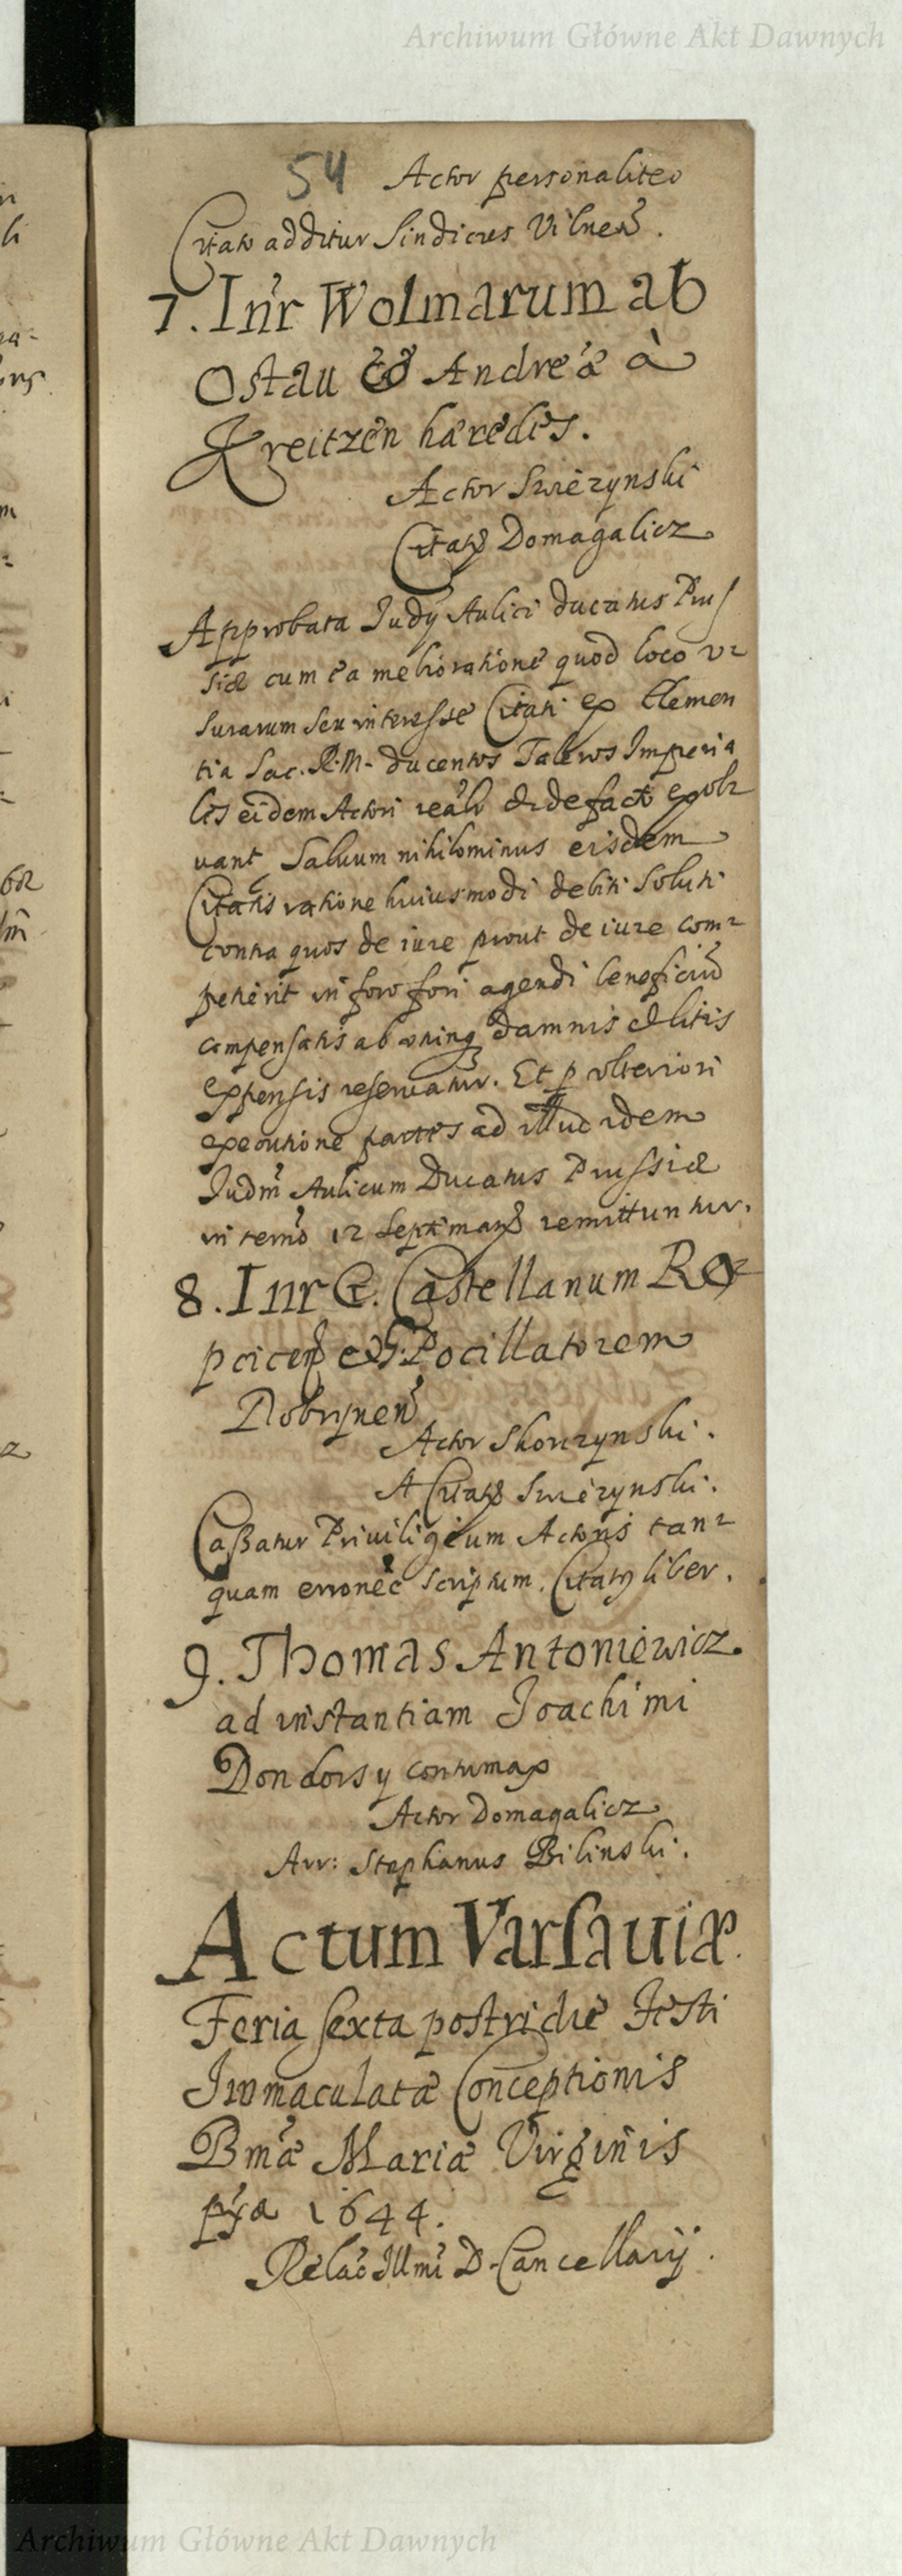 Archiwum Główne Akt Dawnych
54 Actor personaliter
Citato additur Sindicus Vilneñ.
7. Inr̃ Wolmarum ab
Ostau & Andreæ à
Kreitzen hæredes.
Actor Swierzynski
Citatꝰ Domagalicz
Approbata Judÿ Aulici ducatus Prus
siæ cum ea melioratione quod loco v
surarum seu interesse Citati ex Clemen
tia Sac. R. M. ducentos Taleros Imperia
les eidem Actori realr̃ & de facto exol
vant, Saluum nihilominus eisdem
Citatis ratione huiusmodi debiti soluti
contra quos de iure prout de iure com
petierit in foro fori agendi beneficiũ
compensatis ab vtrinq damnis & litis
expensis reseruatur. Et p vlteriori
executione partes ad illud idem
Judm̃ Aulicum Ducatus Prussiæ
in termõ 12 Septimanꝰ remittuntur.
8. Inr G. Castellanum Ro
pcicen & G. Pocillatorem
Dobrynen̄
Actor Skorzynski.
A Citatꝰ Swierzynski.
Cassatur Priuiligeum Actoris tan
quam erroneè scriptum. Citatꝰ liber.
9. Thomas Antoniewicz
ad instantiam Joachimi
Dondorsy contumax
Actor Domagalicz
Arr: Stephanus Bilinski.
Actum Varsauiæ.
Feria sexta postridie Festi
Immaculatæ Conceptionis
Bmæ̃ Mariæ Virginis
1644.
Relaõ Illmĩ D. Cancellarij.
Archiwum Główne Akt Dawnych